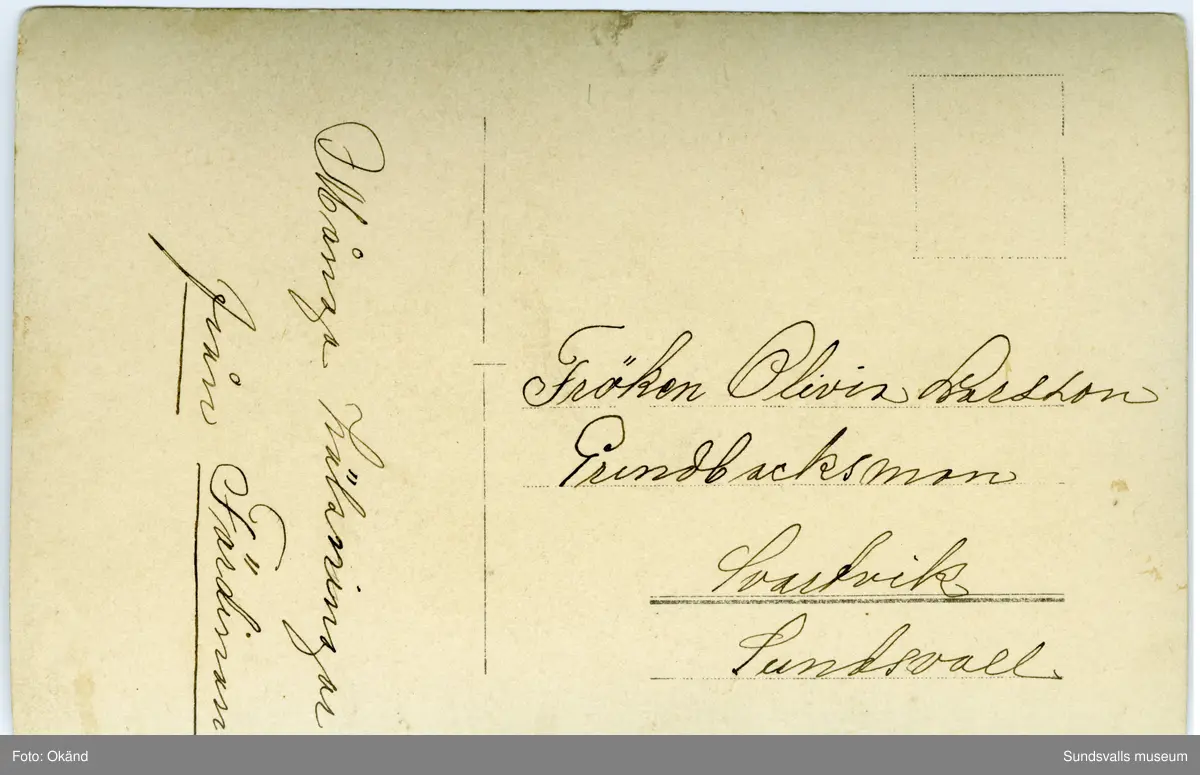 Många hälsningar
från Färdinan
Fröken Olivia Larsson
Grundbacksmon
Svartvik
Sundsvall
Foto: Okänd
Sundsvalls museum